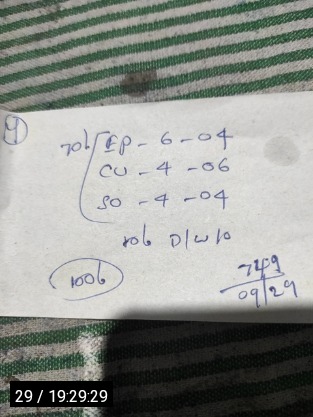 4
70b EP - 6 - 04
CU - 4 - 06
SO - 4 - 04
10b D/W/O
100b
749
09/29
29 / 19:29:29